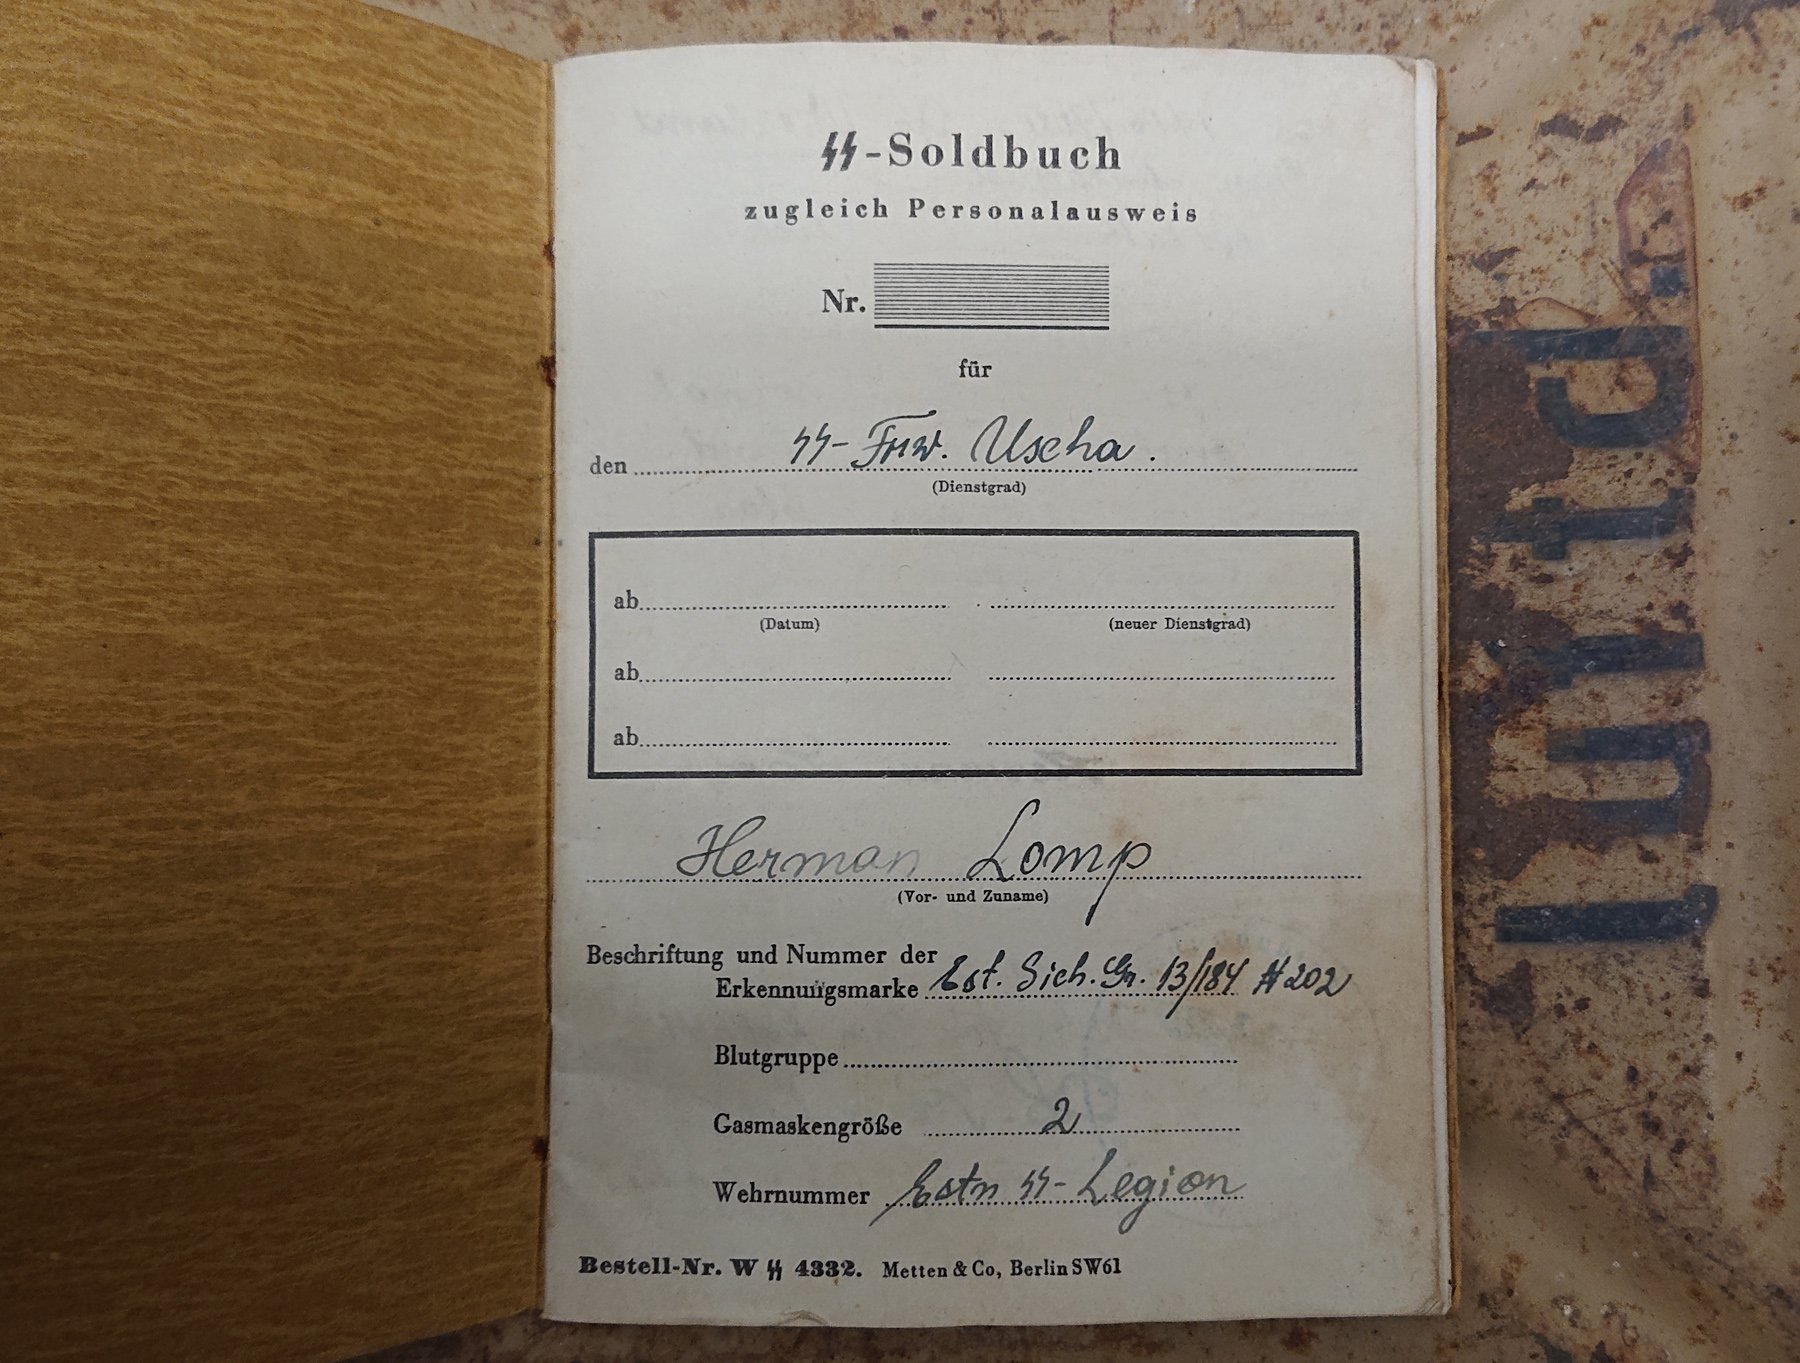 ᛋᛋ-Soldbuch
zugleich Personalausweis
Nr.
für
den ᛋᛋ-Frw. Uscha.
(Dienstgrad)
ab
(Datum) (neuer Dienstgrad)
ab
ab
Herman Lomp
(Vor- und Zuname)
Beschriftung und Nummer der
Erkennungsmarke Est. Sich. Gr. 13/184 # 202
Blutgruppe
Gasmaskengröße 2
Wehrnummer Estn ᛋᛋ-Legion
Bestell-Nr. W ᛋᛋ 4332. Metten & Co, Berlin SW61